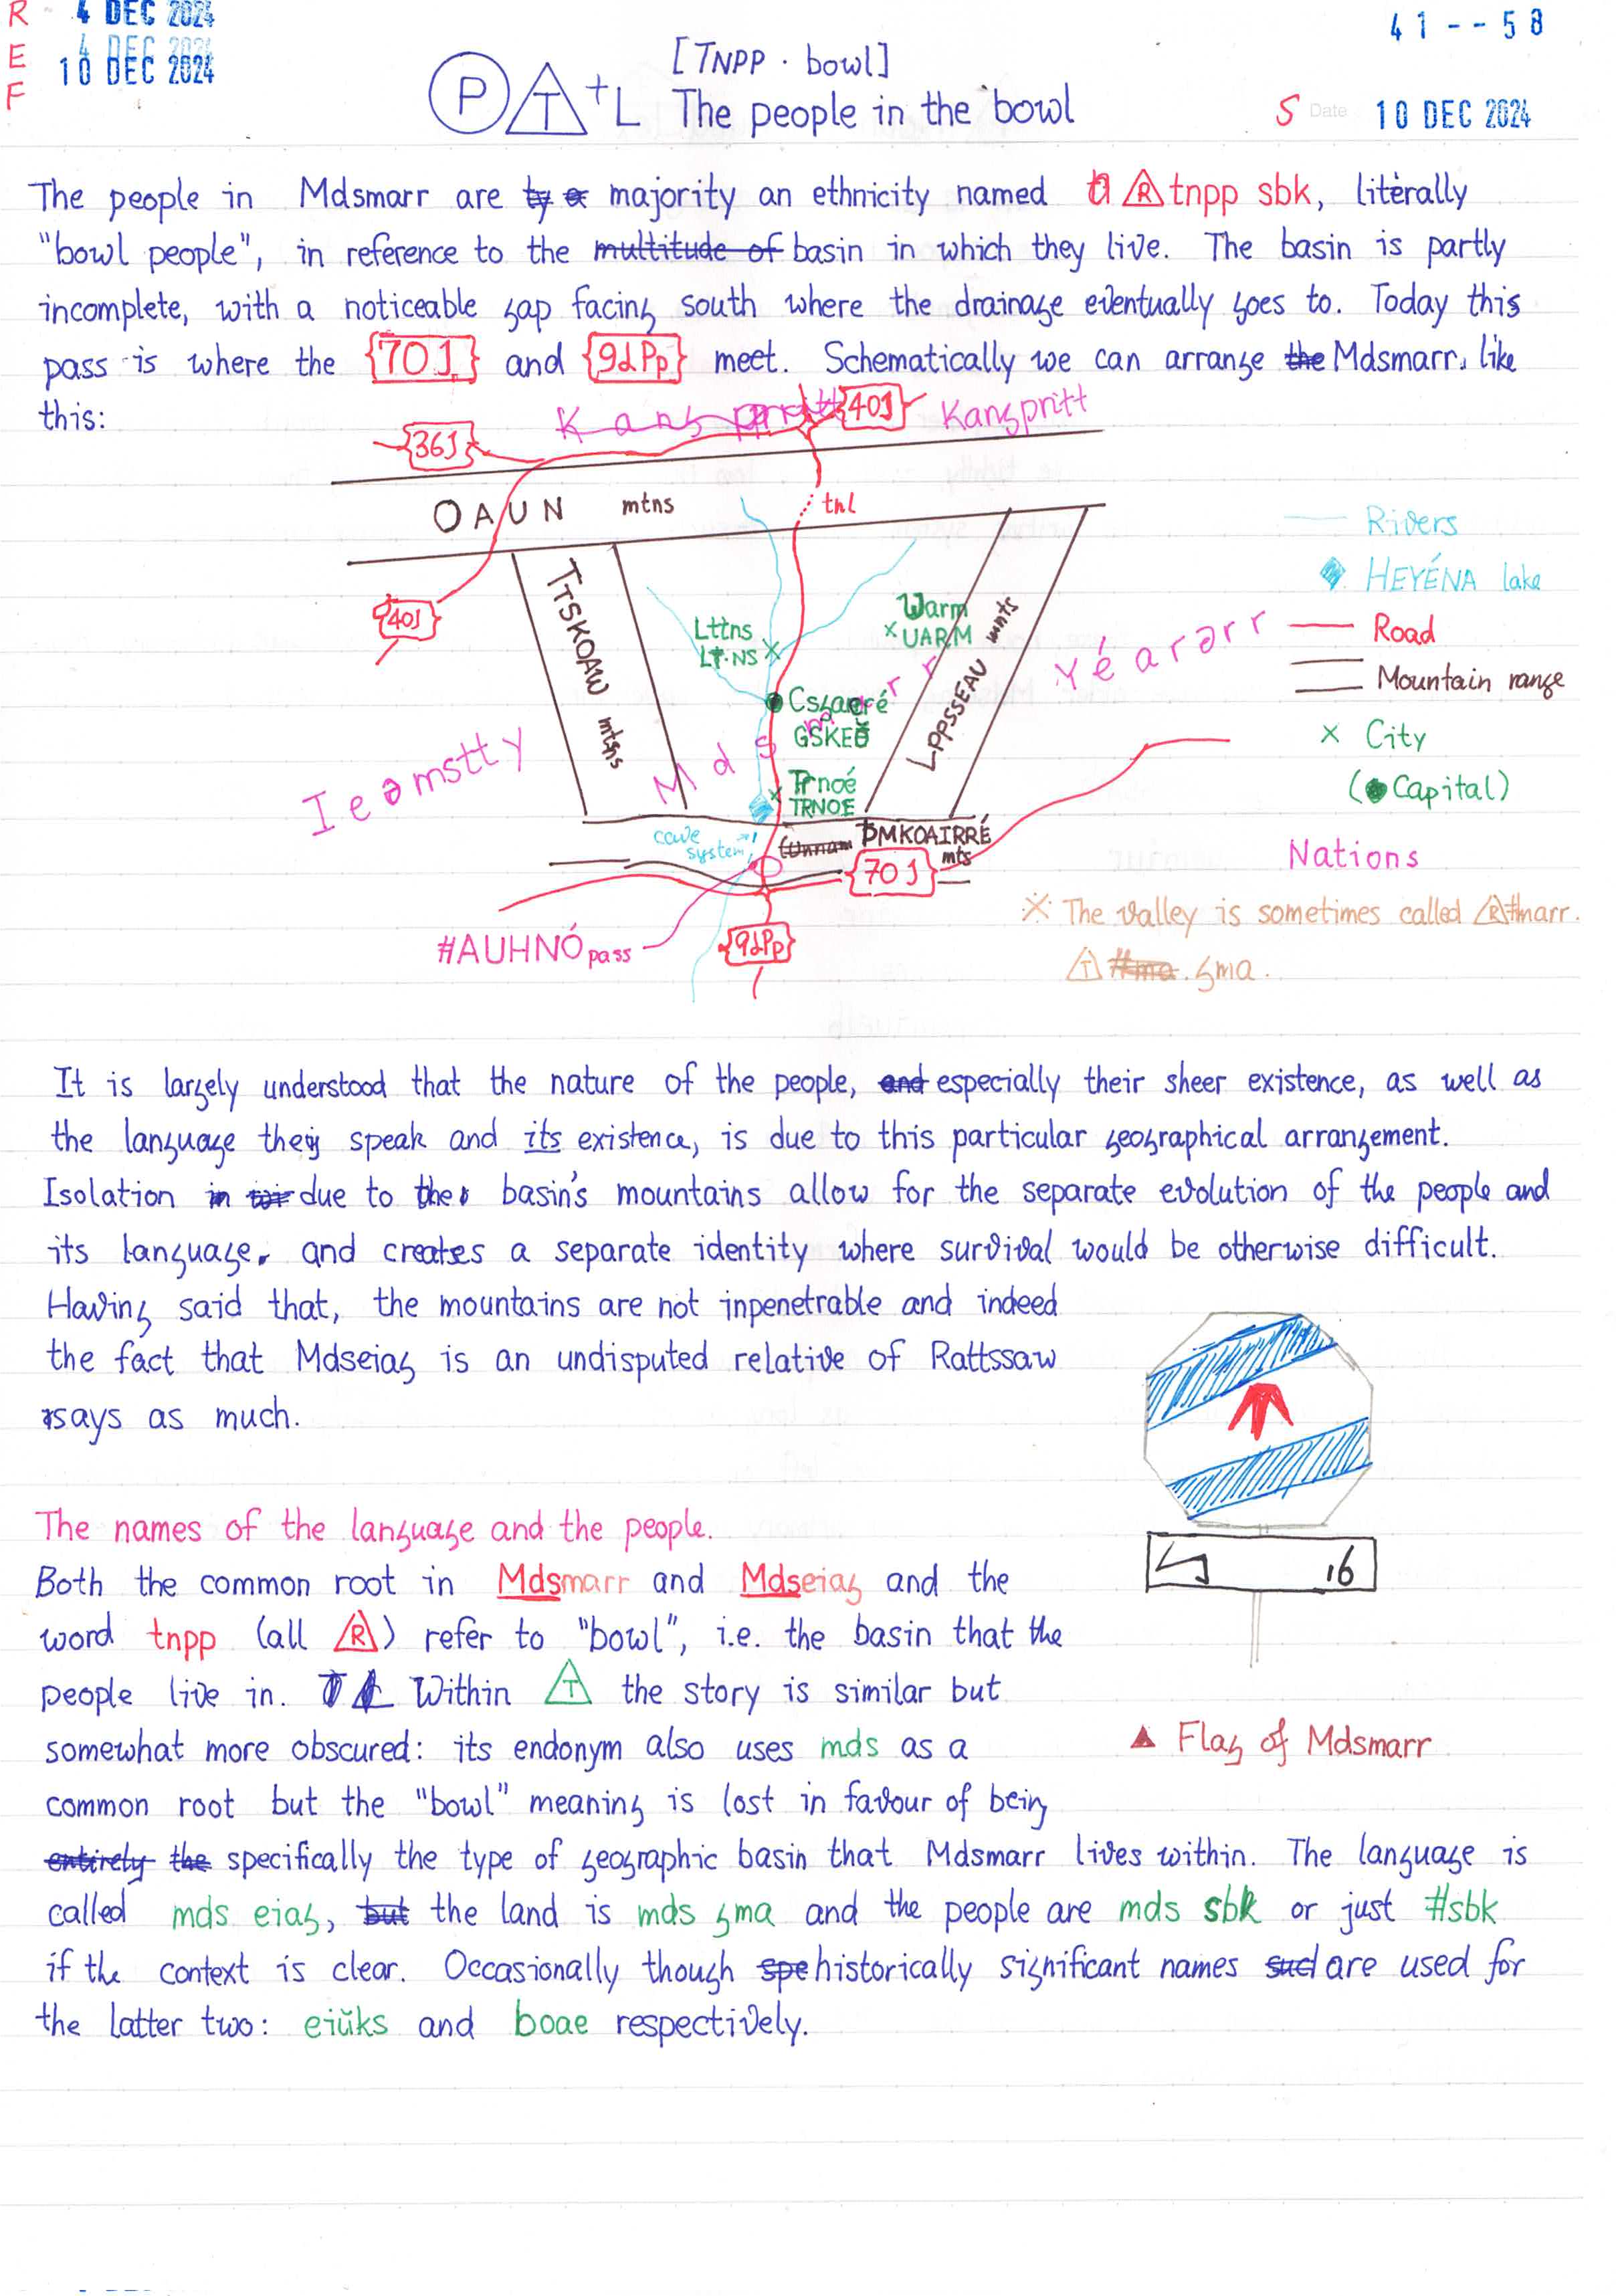 R 4 DEC 2024
E 4 DEC 2024
F 10 DEC 2024
41--58
[TNPP · bowl]
P T +L The people in the bowl
S Date 10 DEC 2024
The people in Mdsmarr are majority an ethnicity named R tnpp sbk, literally
"bowl people", in reference to the multitude of basin in which they live. The basin is partly
incomplete, with a noticeable gap facing south where the drainage eventually goes to. Today this
pass is where the {70J} and {9dPp} meet. Schematically we can arrange the Mdsmarr like
this:
Kangpritt {40J} Kangpritt
{36J}
OAUN mtns
tnl
Rivers
HEYÉNA lake
{40J}
TTSKOAW mtns
Lttns
LT·NS
Warm
UARM
LPPSSEAU mnts
Yéararr
Road
Mountain range
Csgaeré
GSKEŎ
City
(Capital)
Mdsmarr
Ieamstty
Trnoé
TRNOE
cave
system
PMKOAIRRÉ
mts
{70J}
Nations
#AUHNÓ pass
{9dPp}
※ The valley is sometimes called R #marr.
T #ma gma.
It is largely understood that the nature of the people, and especially their sheer existence, as well as
the language they speak and its existence, is due to this particular geographical arrangement.
Isolation in due to the basin's mountains allow for the separate evolution of the people and
its language, and creates a separate identity where survival would be otherwise difficult.
Having said that, the mountains are not inpenetrable and indeed
the fact that Mdseiag is an undisputed relative of Rattssaw
says as much.
The names of the language and the people.
Both the common root in Mdsmarr and Mdseiag and the
word tnpp (all R) refer to "bowl", i.e. the basin that the
people live in. Within T the story is similar but
somewhat more obscured: its endonym also uses mds as a
common root but the "bowl" meaning is lost in favour of being
entirely the specifically the type of geographic basin that Mdsmarr lives within. The language is
called mds eiag, but the land is mds gma and the people are mds sbk or just #sbk
if the context is clear. Occasionally though spe historically significant names sucl are used for
the latter two: eiŭks and boae respectively.
16
▲ Flag of Mdsmarr